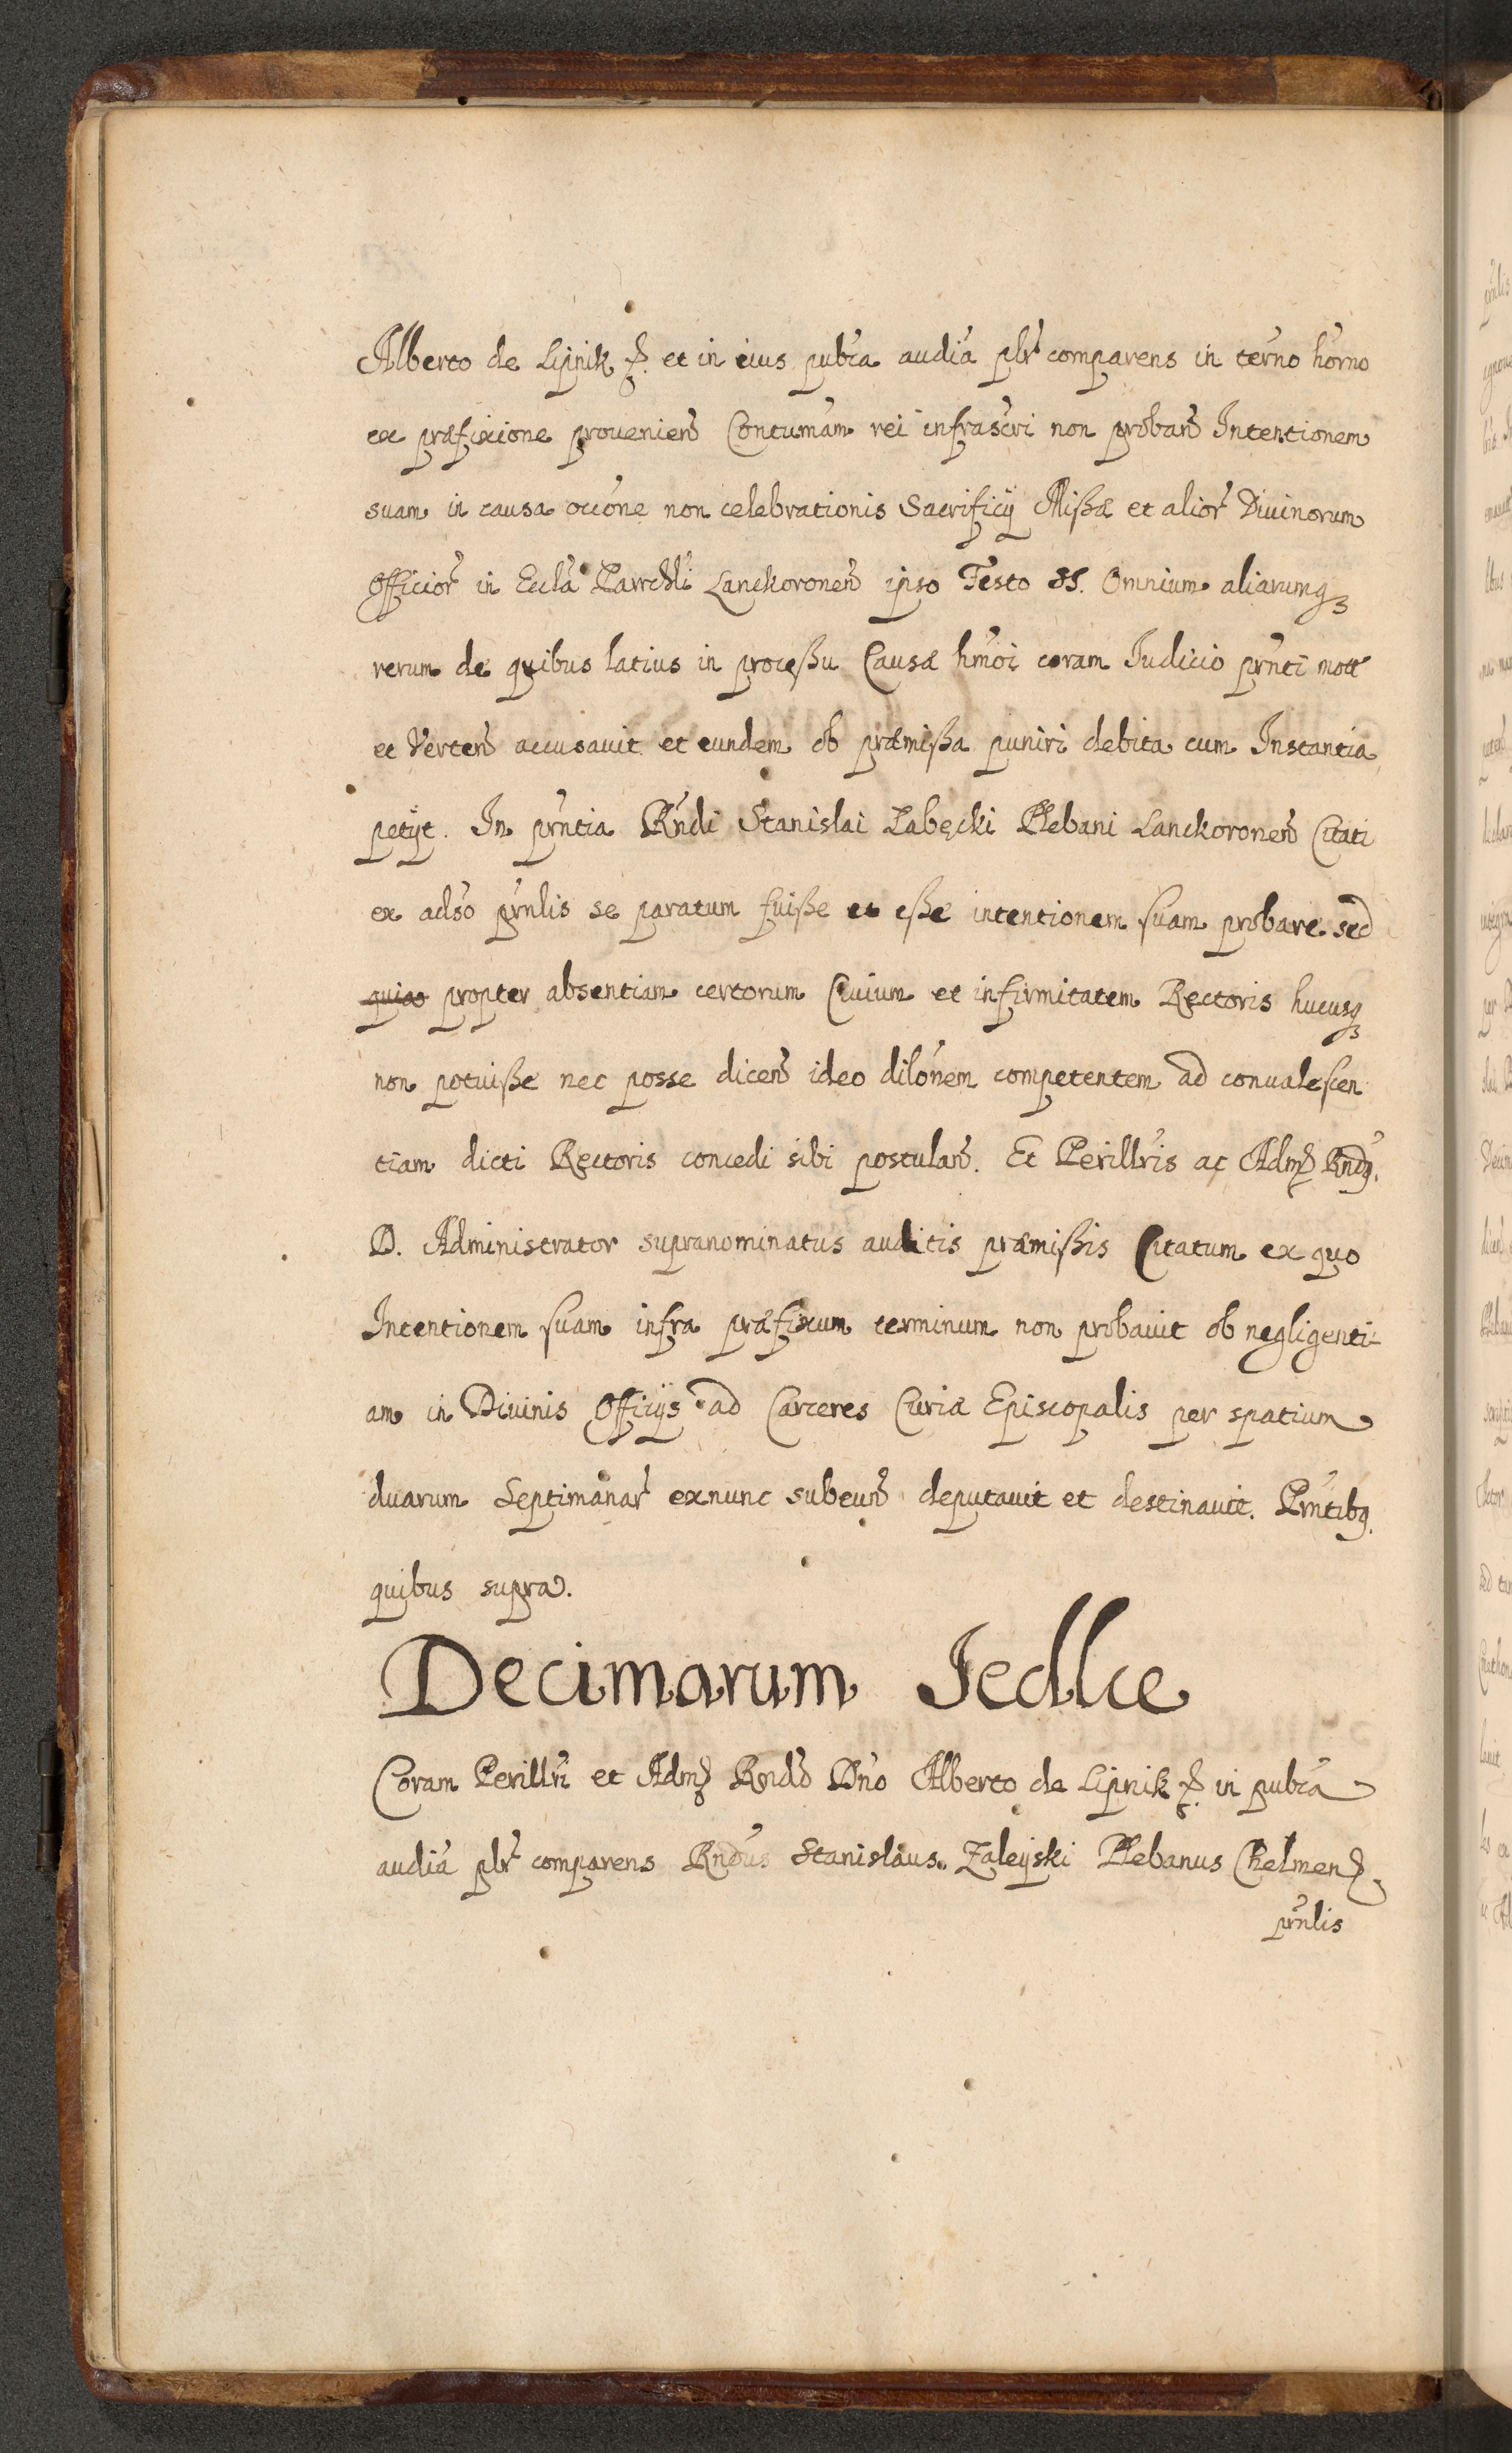 Alberto de Lipnik etc. et in eius pubca audia plr comparens in terno horno
ex præfixione proveniens Contumam rei infrascri non probans Intentionem
suam in causa occone non celebrationis Sacrificÿ Missæ et alior Diuinorum
Officior in Eccla Parrchli Lanckoronens ipso Festo SS. Omnium aliarumq
rerum de quibus latius in processu Causæ hmoi coram Iudicio prnti mott
et Vertens accusauit et eundem ob præmissa puniri debita cum Instantia
petÿt. In prntia Rndi Stanislai Łabęcki Plebani Lanckoronens Citati
ex adso prnlis se paratum fuisse et esse intentionem suam probare sed
quia propter absentiam certorum Ciuium et infirmitatem Rectoris hucusq
non potuisse nec posse dicens ideo dilonem competentem ad conualescen
tiam dicti Rectoris concedi sibi postulans. Et Perillris ac Adm Rndg.
D. Administrator supranominatus auditis præmissis Citatum ex quo
Intentionem suam infra præfixum terminum non probauit ob negligenti-
am in Diuinis Officÿs ad Carceres Curiæ Episcopalis per spatium
duarum Septimanar exnunc subeuns deputauit et destinauit. Prntibg.
quibus supra.
Decimarum Jedlce
Coram Perillri et Adm Rndo Dno Alberto de Lipnik etc. in pubca
audia plr comparens Rndus Stanislaus Zaleÿski Plebanus Chelmens
prnlis